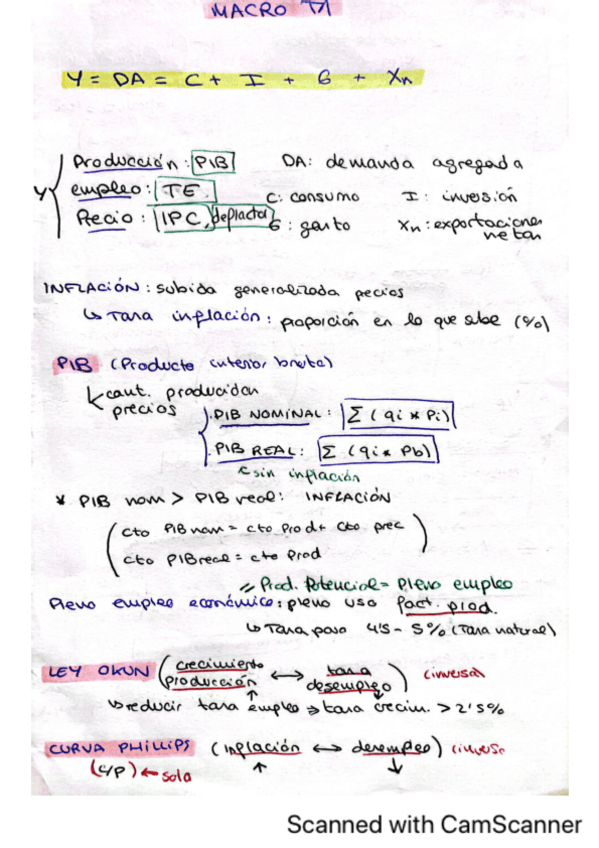 MACRO T1
Y = DA = C + I + G + Xn
Producción: PIB DA: demanda agregada
Y empleo: TE C: consumo I: inversión
Precio: IPC, deflactor G: gasto Xn: exportaciones netas
INFLACIÓN: subida generalizada precios
↳ Tasa inflación: proporción en lo que sube (%)
PIB (Producto interior bruto)
cant. producidas
precios
· PIB NOMINAL: Σ (qi * Pi)
· PIB REAL: Σ (qi * Pb)
sin inflación
* PIB nom > PIB real: INFLACIÓN
(cto PIB nom = cto Prod + cto prec
cto PIB real = cto Prod)
// Prod. Potencial = Pleno empleo
Pleno empleo económico: pleno uso fact. prod.
↳ Tasa paro 4'5 - 5% (Tasa natural)
LEY OKUN (crecimiento producción ↑ ↔ tasa desempleo ↓) (inversa)
↳ reducir tasa empleo ⇒ tasa crecim. > 2'5%
CURVA PHILLIPS (inflación ↔ desempleo) (inversa
(C/P) ← sola ↑ ↓
Scanned with CamScanner